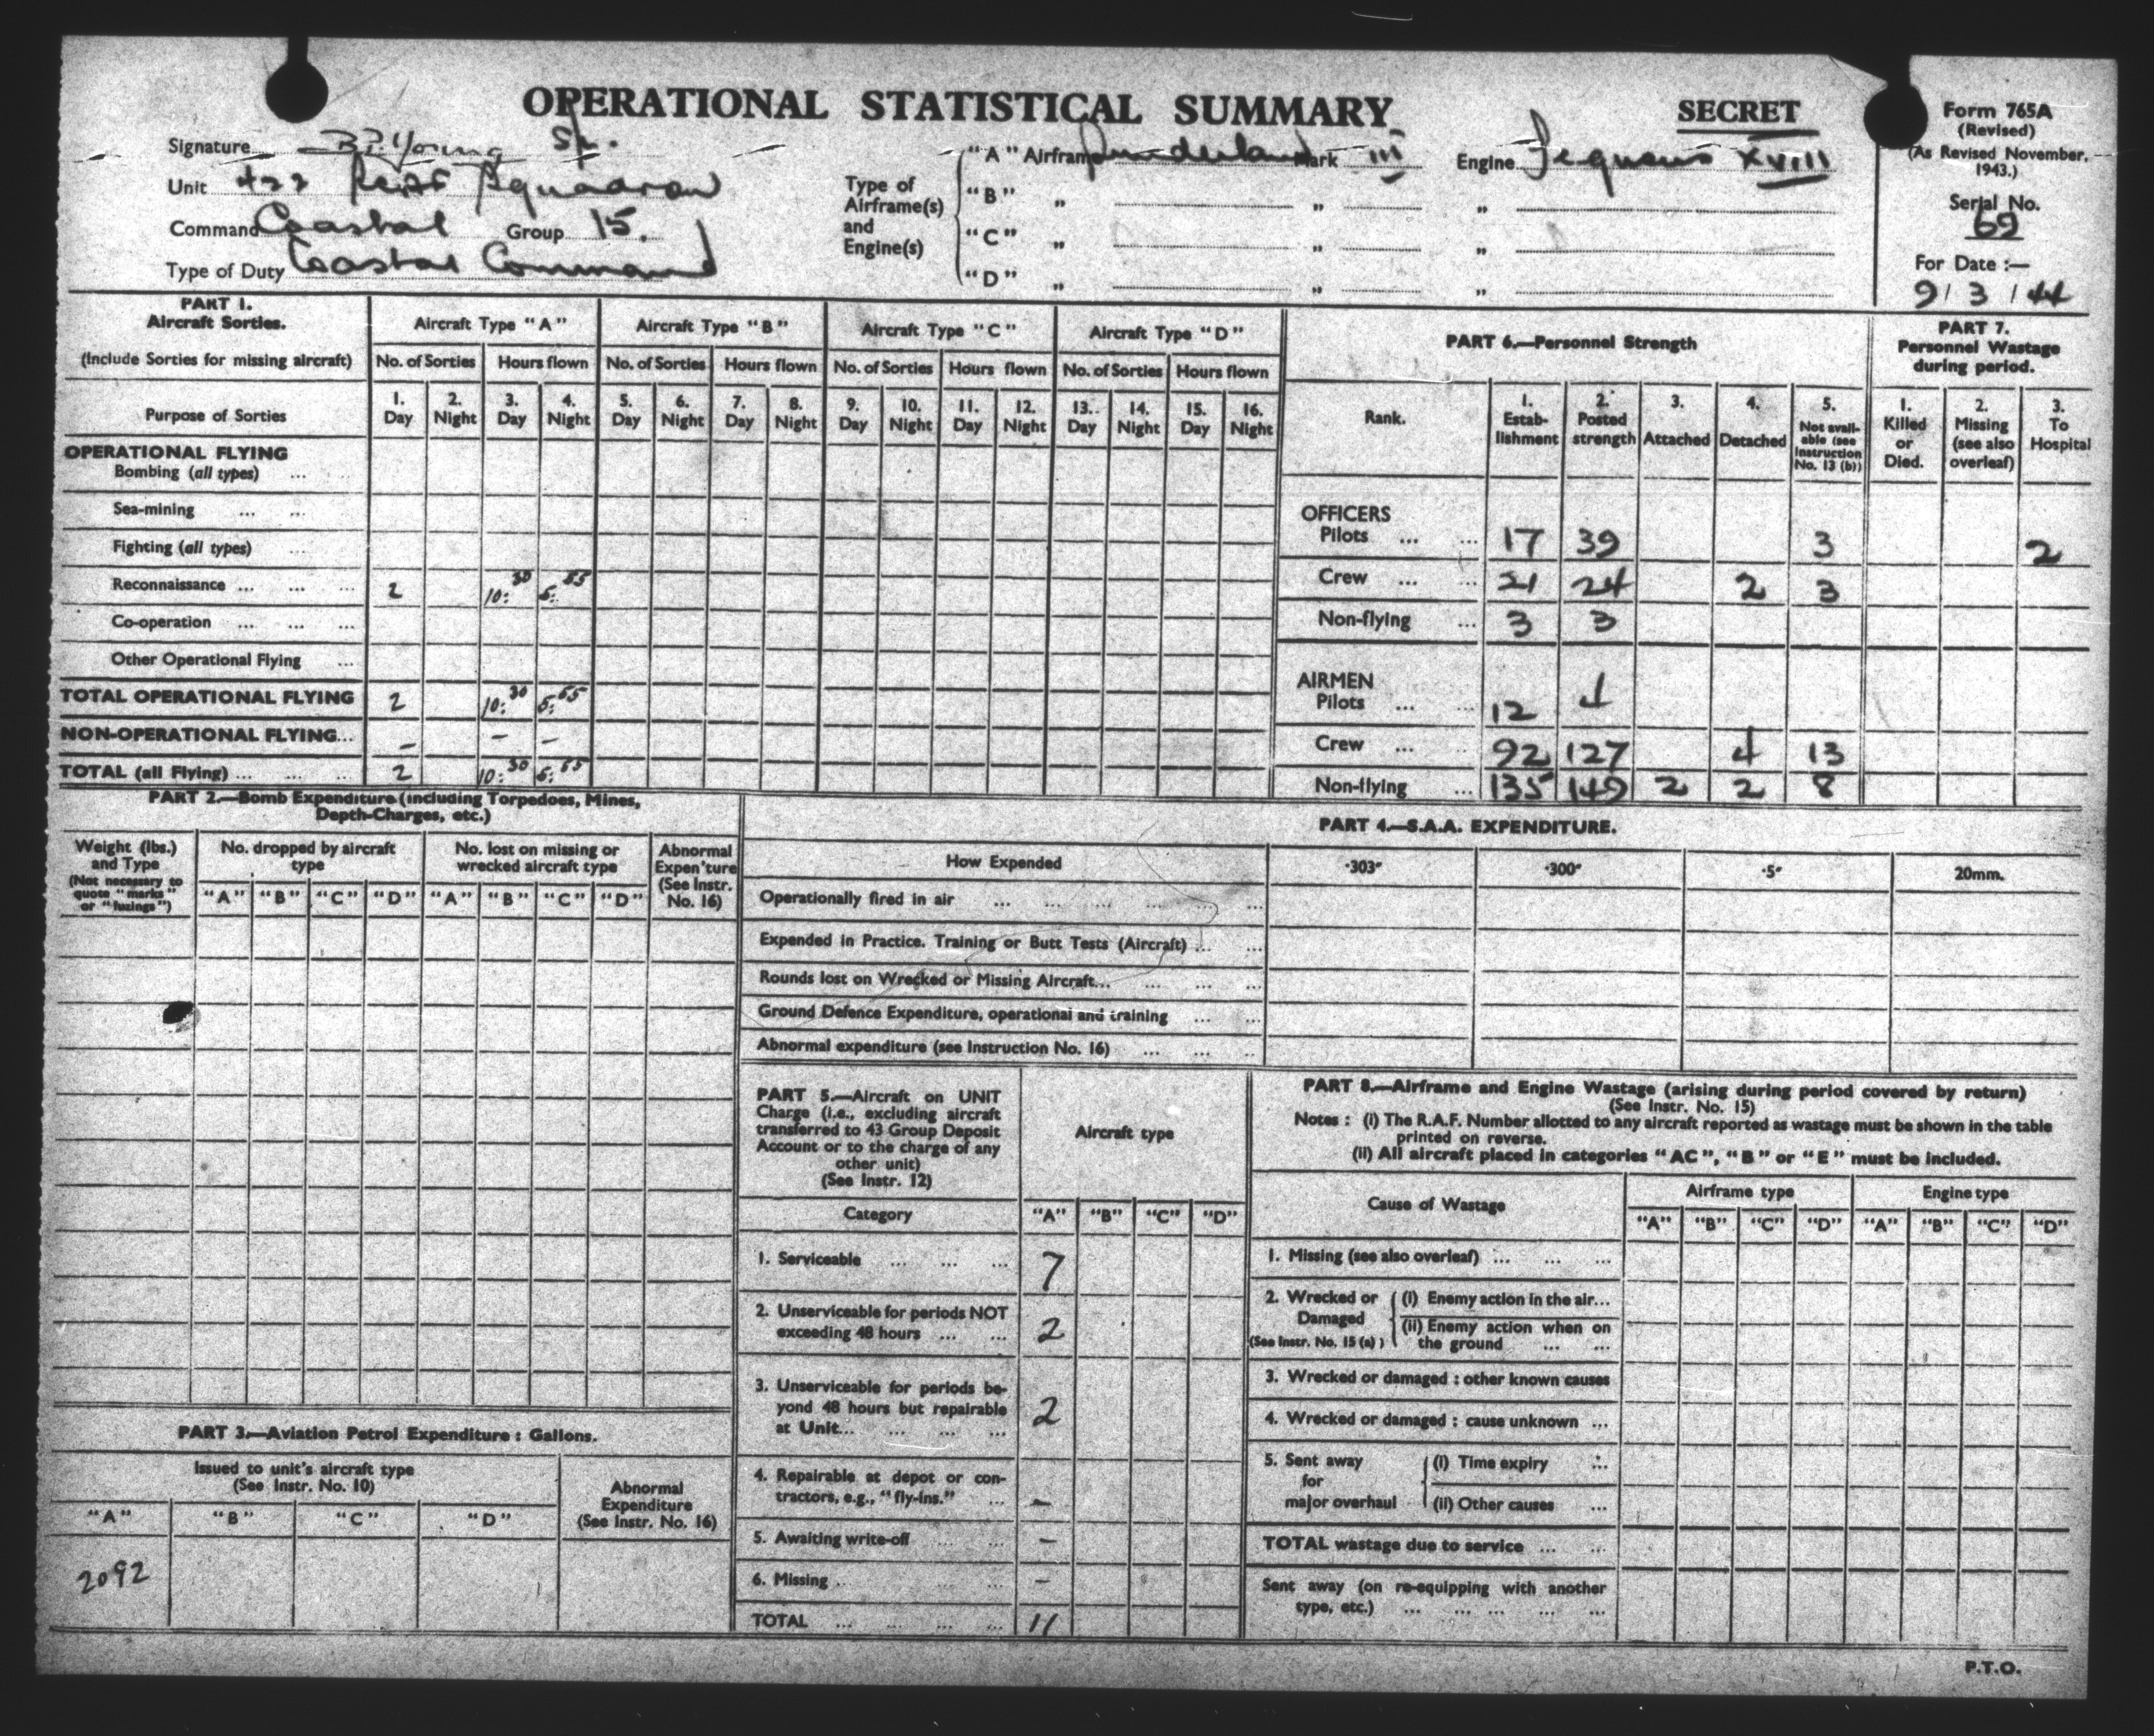 OPERATIONAL STATISTICAL SUMMARY
SECRET
Form 765A
(Revised)
(As Revised November, 1943.)
Serial No.
69
For Date :—
9 / 3 / 44
Signature B.P. Young S/L.
Unit 422 RCAF Squadron
Command Coastal Group 15.
Type of Duty Coastal Command
Type of Airframe(s) and Engine(s)
"A" Airframe Sunderland Mark III Engine Pegasus XVIII
"B" " " "
"C" " " "
"D" " " "
PART 1.
Aircraft Sorties.
(Include Sorties for missing aircraft)
Purpose of Sorties
Aircraft Type "A" Aircraft Type "B" Aircraft Type "C" Aircraft Type "D"
No. of Sorties Hours flown No. of Sorties Hours flown No. of Sorties Hours flown No. of Sorties Hours flown
1. Day 2. Night 3. Day 4. Night 5. Day 6. Night 7. Day 8. Night 9. Day 10. Night 11. Day 12. Night 13. Day 14. Night 15. Day 16. Night
OPERATIONAL FLYING
Bombing (all types) ...
Sea-mining ... ...
Fighting (all types) ...
Reconnaissance ... ... ... 2 10:30 5:55
Co-operation ... ... ...
Other Operational Flying ...
TOTAL OPERATIONAL FLYING 2 10:30 5:55
NON-OPERATIONAL FLYING... – – –
TOTAL (all Flying) ... ... ... 2 10:30 5:55
PART 6.—Personnel Strength
Rank.
1. Estab-lishment
2. Posted strength
3. Attached
4. Detached
5. Not avail-able (see Instruction No. 13 (b))
PART 7.
Personnel Wastage during period.
1. Killed or Died.
2. Missing (see also overleaf)
3. To Hospital
OFFICERS
Pilots ... ... 17 39 3 2
Crew ... ... 21 24 2 3
Non-flying ... 3 3
AIRMEN
Pilots ... ... 12 4
Crew ... ... 92 127 4 13
Non-flying ... 135 149 2 2 8
PART 2.—Bomb Expenditure (including Torpedoes, Mines, Depth-Charges, etc.)
Weight (lbs.) and Type
(Not necessary to quote "marks" or "fuzings")
No. dropped by aircraft type
No. lost on missing or wrecked aircraft type
Abnormal Expen'ture (See Instr. No. 16)
"A" "B" "C" "D" "A" "B" "C" "D"
PART 4.—S.A.A. EXPENDITURE.
How Expended ·303" ·300" ·5" 20mm.
Operationally fired in air ... ... ... ... ... ...
Expended in Practice. Training or Butt Tests (Aircraft) ... ...
Rounds lost on Wrecked or Missing Aircraft... ... ... ...
Ground Defence Expenditure, operational and training ... ...
Abnormal expenditure (see Instruction No. 16) ... ... ...
PART 3.—Aviation Petrol Expenditure : Gallons.
Issued to unit's aircraft type
(See Instr. No. 10)
Abnormal Expenditure
(See Instr. No. 16)
"A" "B" "C" "D"
2092
PART 5.—Aircraft on UNIT
Charge (i.e., excluding aircraft
transferred to 43 Group Deposit
Account or to the charge of any
other unit)
(See Instr. 12)
Aircraft type
Category "A" "B" "C" "D"
1. Serviceable ... ... ... 7
2. Unserviceable for periods NOT
exceeding 48 hours ... ... 2
3. Unserviceable for periods be-
yond 48 hours but repairable
at Unit... ... ... ... 2
4. Repairable at depot or con-
tractors, e.g., "fly-ins." ... –
5. Awaiting write-off ... ... –
6. Missing ... ... ... –
TOTAL ... ... ... ... 11
PART 8.—Airframe and Engine Wastage (arising during period covered by return)
(See Instr. No. 15)
Notes : (i) The R.A.F. Number allotted to any aircraft reported as wastage must be shown in the table
printed on reverse.
(ii) All aircraft placed in categories "AC", "B" or "E" must be included.
Cause of Wastage Airframe type Engine type
"A" "B" "C" "D" "A" "B" "C" "D"
1. Missing (see also overleaf) ... ... ...
2. Wrecked or Damaged (See Instr. No. 15 (a) )
(i) Enemy action in the air...
(ii) Enemy action when on
the ground ... ...
3. Wrecked or damaged : other known causes
4. Wrecked or damaged : cause unknown ...
5. Sent away for major overhaul
(i) Time expiry ...
(ii) Other causes ...
TOTAL wastage due to service ... ...
Sent away (on re-equipping with another
type, etc.) ... ... ... ... ...
P.T.O.